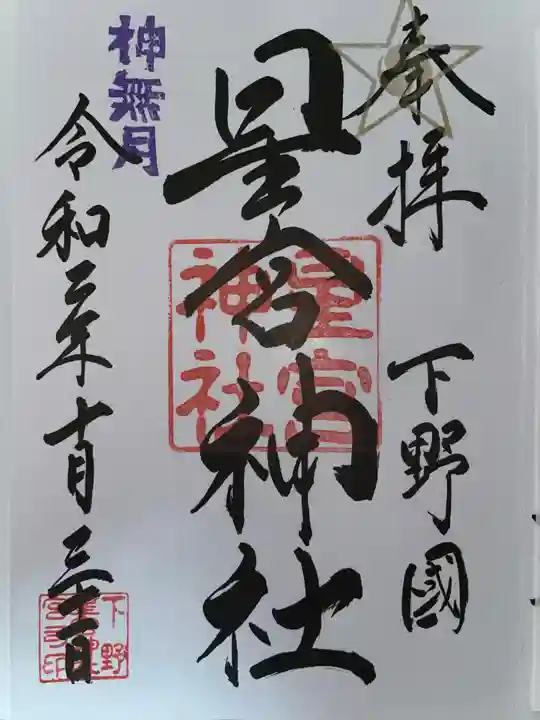 奉拝 下野國
星宮神社
神無月
令和三年十月三十一日
星宮
神社
下野